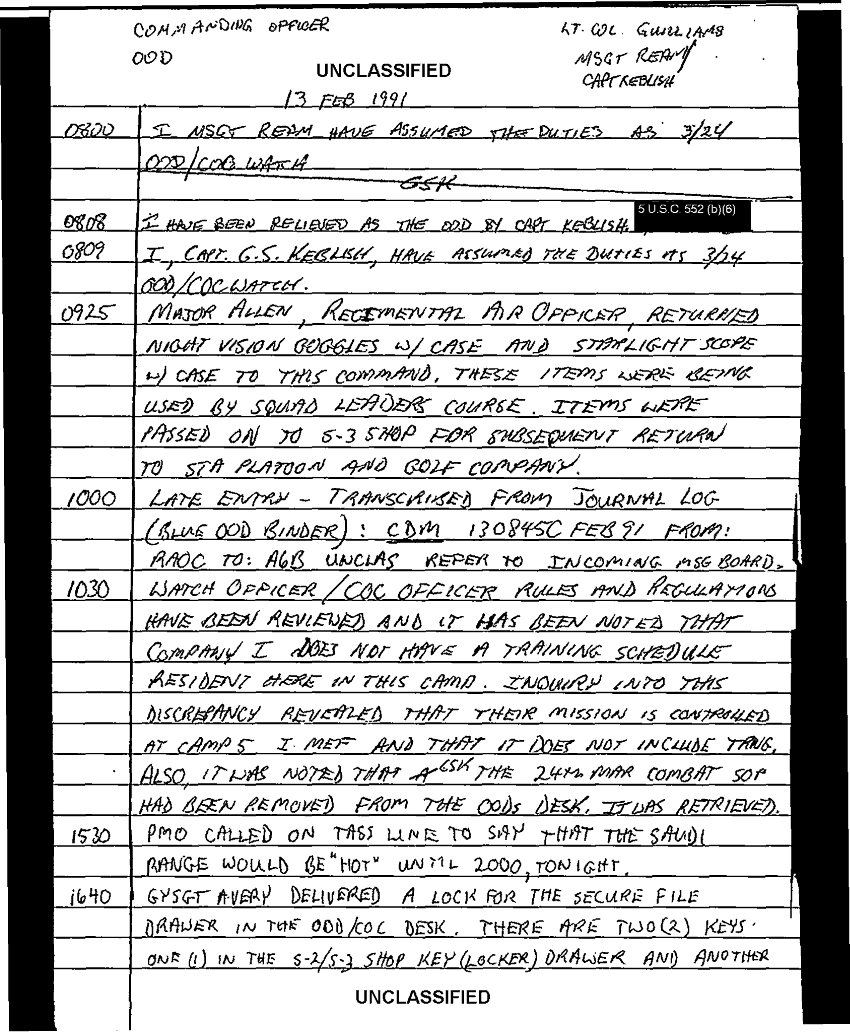 COMMANDING OFFICER LT. COL. GUILLIAMS
OOD MSGT REAM
UNCLASSIFIED CAPT KEBLISH
13 FEB 1991
0800 I MSGT REAM HAVE ASSUMED THE DUTIES AS 3/24
OOD/COG WATCH
GSK
5 U.S.C. 552 (b)(6)
0808 I HAVE BEEN RELIEVED AS THE OOD BY CAPT KEBLISH.
0809 I, CAPT. G.S. KEBLISH, HAVE ASSUMED THE DUTIES AS 3/24
OOD/COC WATCH.
0925 MAJOR ALLEN, REGIMENTAL AIR OFFICER, RETURNED
NIGHT VISION GOGGLES W/ CASE AND STARLIGHT SCOPE
W/ CASE TO THIS COMMAND. THESE ITEMS WERE BEING
USED BY SQUAD LEADERS COURSE. ITEMS WERE
PASSED ON TO S-3 SHOP FOR SUBSEQUENT RETURN
TO STA PLATOON AND GOLF COMPANY.
1000 LATE ENTRY - TRANSCRIBED FROM JOURNAL LOG
(BLUE OOD BINDER): CDM 130845C FEB 91 FROM:
RAOC TO: A6B UNCLAS REFER TO INCOMING MSG BOARD.
1030 WATCH OFFICER/COC OFFICER RULES AND REGULATIONS
HAVE BEEN REVIEWED AND IT HAS BEEN NOTED THAT
COMPANY I DOES NOT HAVE A TRAINING SCHEDULE
RESIDENT HERE IN THIS CAMP. INQUIRY INTO THIS
DISCREPANCY REVEALED THAT THEIR MISSION IS CONTROLLED
AT CAMP 5 I MEF AND THAT IT DOES NOT INCLUDE TRNG.
ALSO, IT WAS NOTED THAT A GSK THE 24TH MAR COMBAT SOP
HAD BEEN REMOVED FROM THE OODs DESK. IT WAS RETRIEVED.
1530 PMO CALLED ON TASS LINE TO SAY THAT THE SAUDI
RANGE WOULD BE "HOT" UNTIL 2000, TONIGHT.
1640 GYSGT AVERY DELIVERED A LOCK FOR THE SECURE FILE
DRAWER IN THE OOD/COC DESK. THERE ARE TWO (2) KEYS.
ONE (1) IN THE S-2/S-3 SHOP KEY (LOCKER) DRAWER AND ANOTHER
UNCLASSIFIED